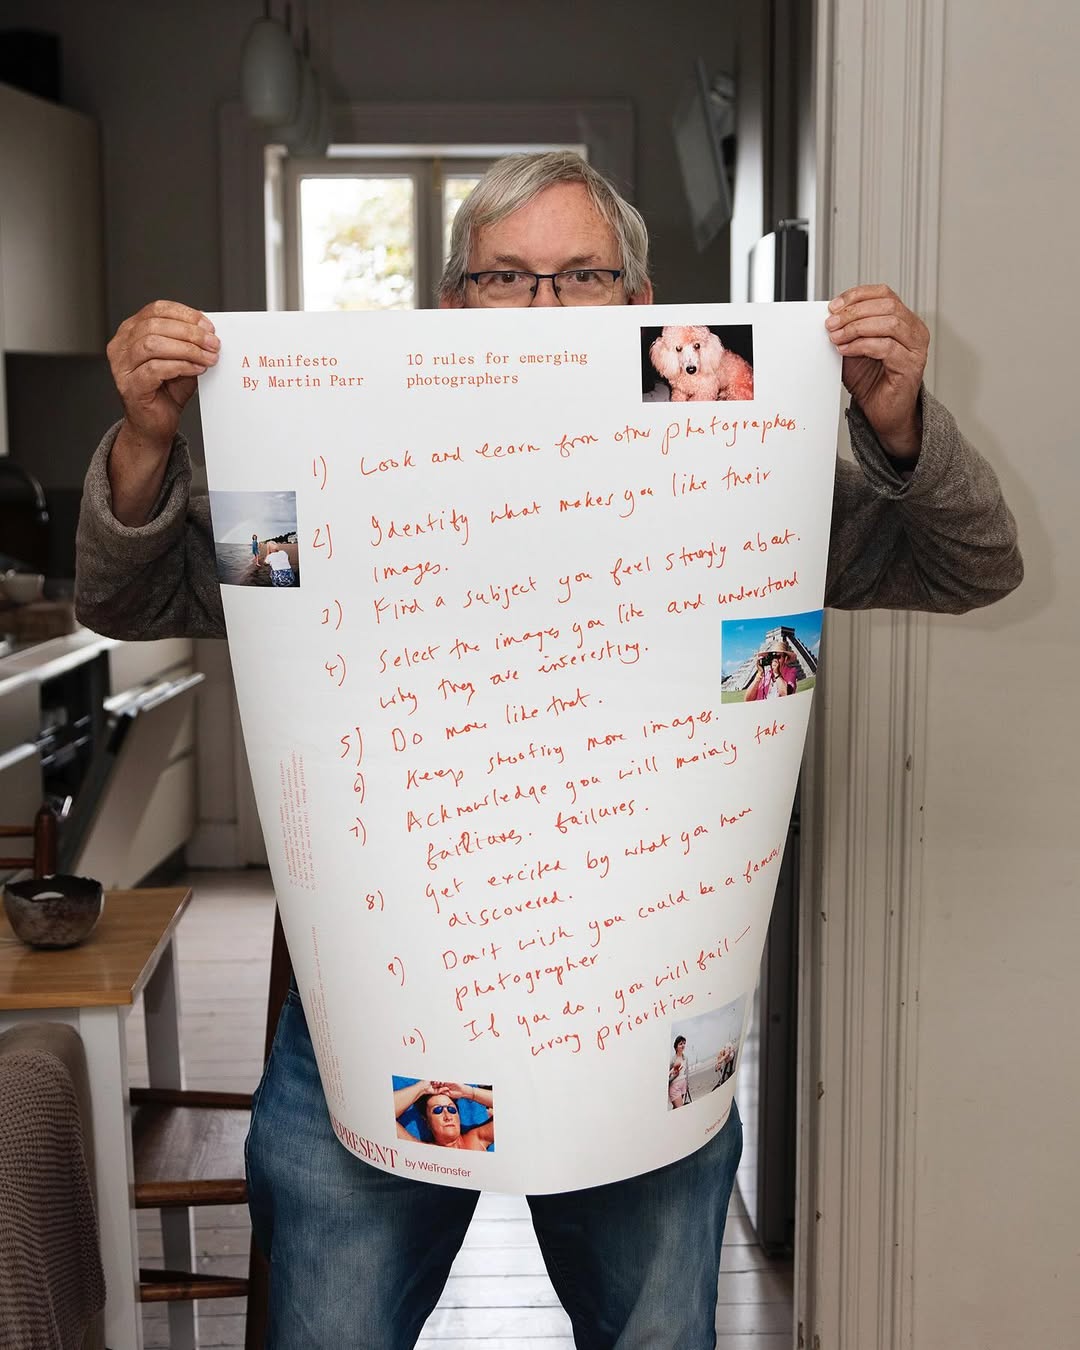 A Manifesto
By Martin Parr
10 rules for emerging
photographers
1) Look and learn from other photographers.
2) Identify what makes you like their
images.
3) Find a subject you feel strongly about.
4) Select the images you like and understand
why they are interesting.
5) Do more like that.
6) Keep shooting more images.
7) Acknowledge you will mainly take
failures. failures.
8) Get excited by what you have
discovered.
9) Don't wish you could be a famous
photographer
10) If you do, you will fail —
wrong priorities.
by WeTransfer